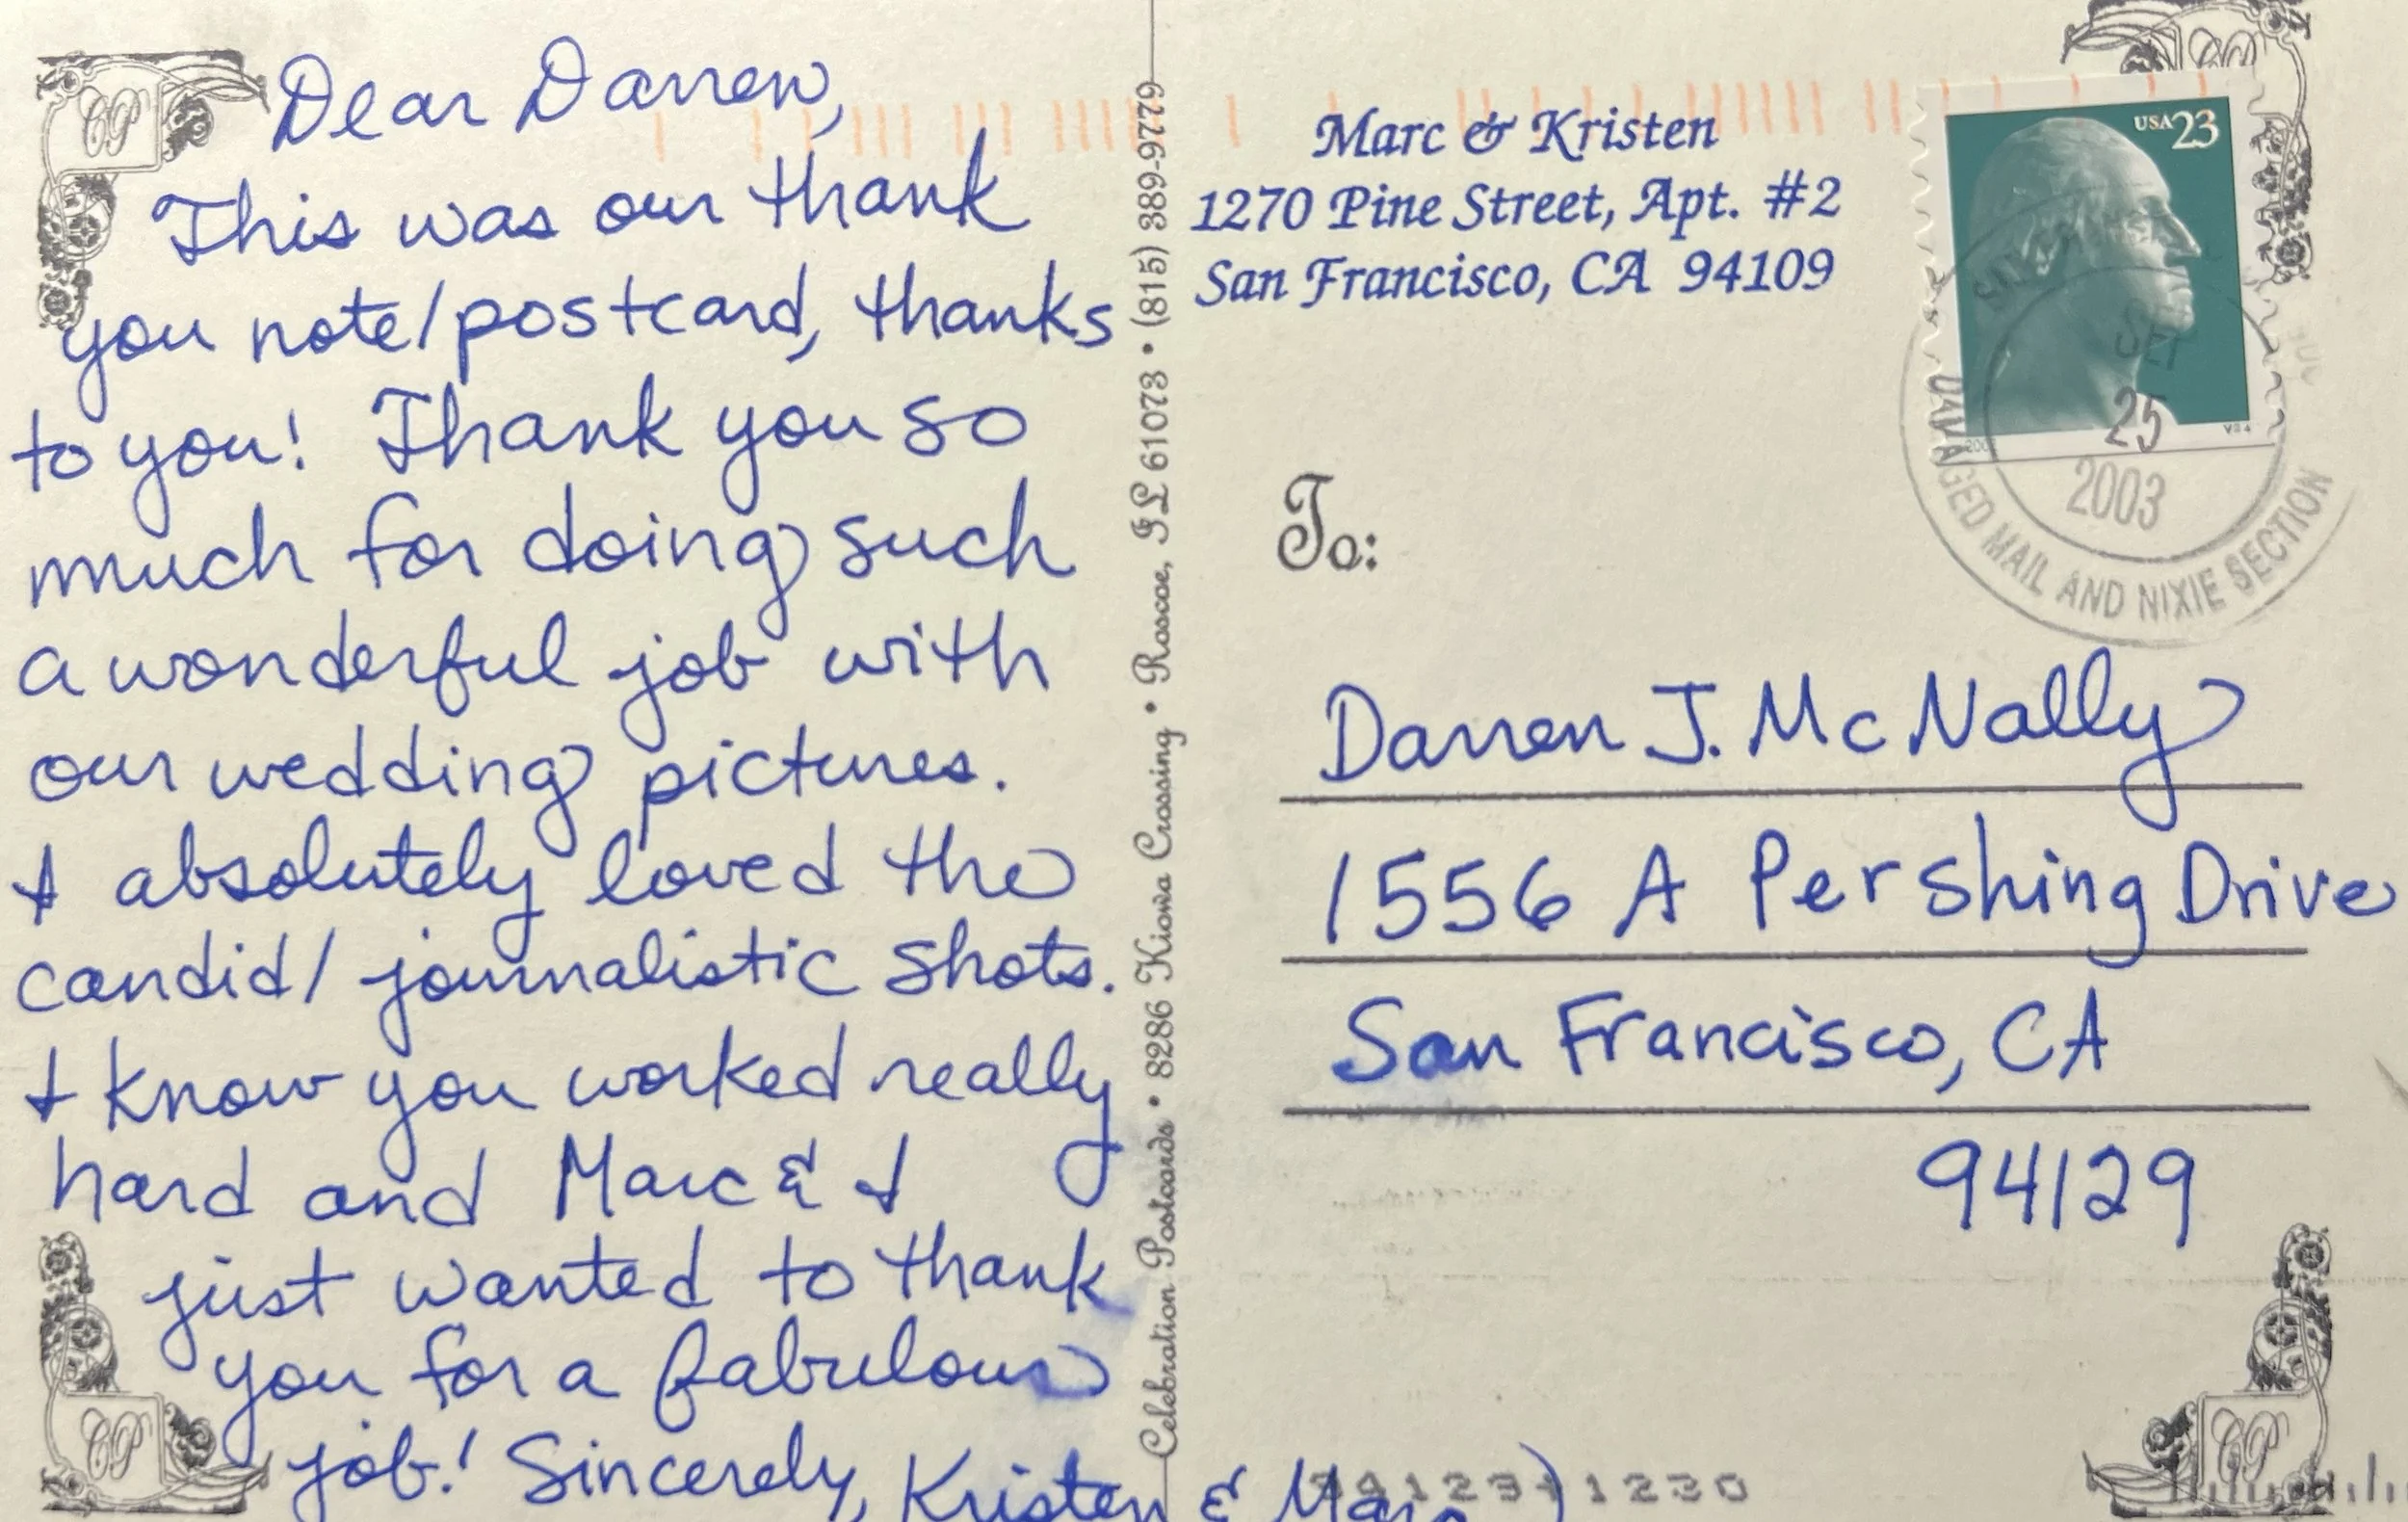 Dear Darren,
This was our thank
you note/postcard, thanks
to you! Thank you so
much for doing such
a wonderful job with
our wedding pictures.
I absolutely loved the
candid/journalistic shots.
I know you worked really
hard and Marc & I
just wanted to thank
you for a fabulous
job! Sincerely, Kristen & Marc
Celebration Postcards • 8286 Kiowa Crossing • Roscoe, IL 61073 • (815) 389-9779
Marc & Kristen
1270 Pine Street, Apt. #2
San Francisco, CA 94109
USA 23
25
2003
DAMAGED MAIL AND NIXIE SECTION
To:
Darren J. McNally
1556 A Pershing Drive
San Francisco, CA
94129
CP
CP
CP
CP